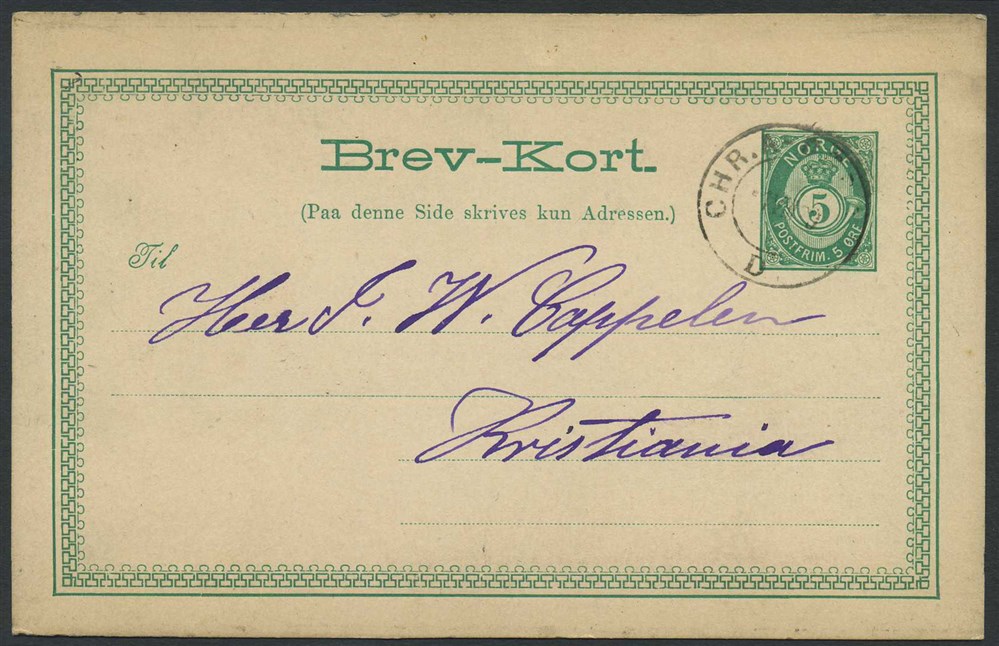 Brev-Kort.
(Paa denne Side skrives kun Adressen.)
NORGE
5
POSTFRIM. 5 ØRE
CHR.
D
Til
Herr J. W. Cappelen
Kristiania